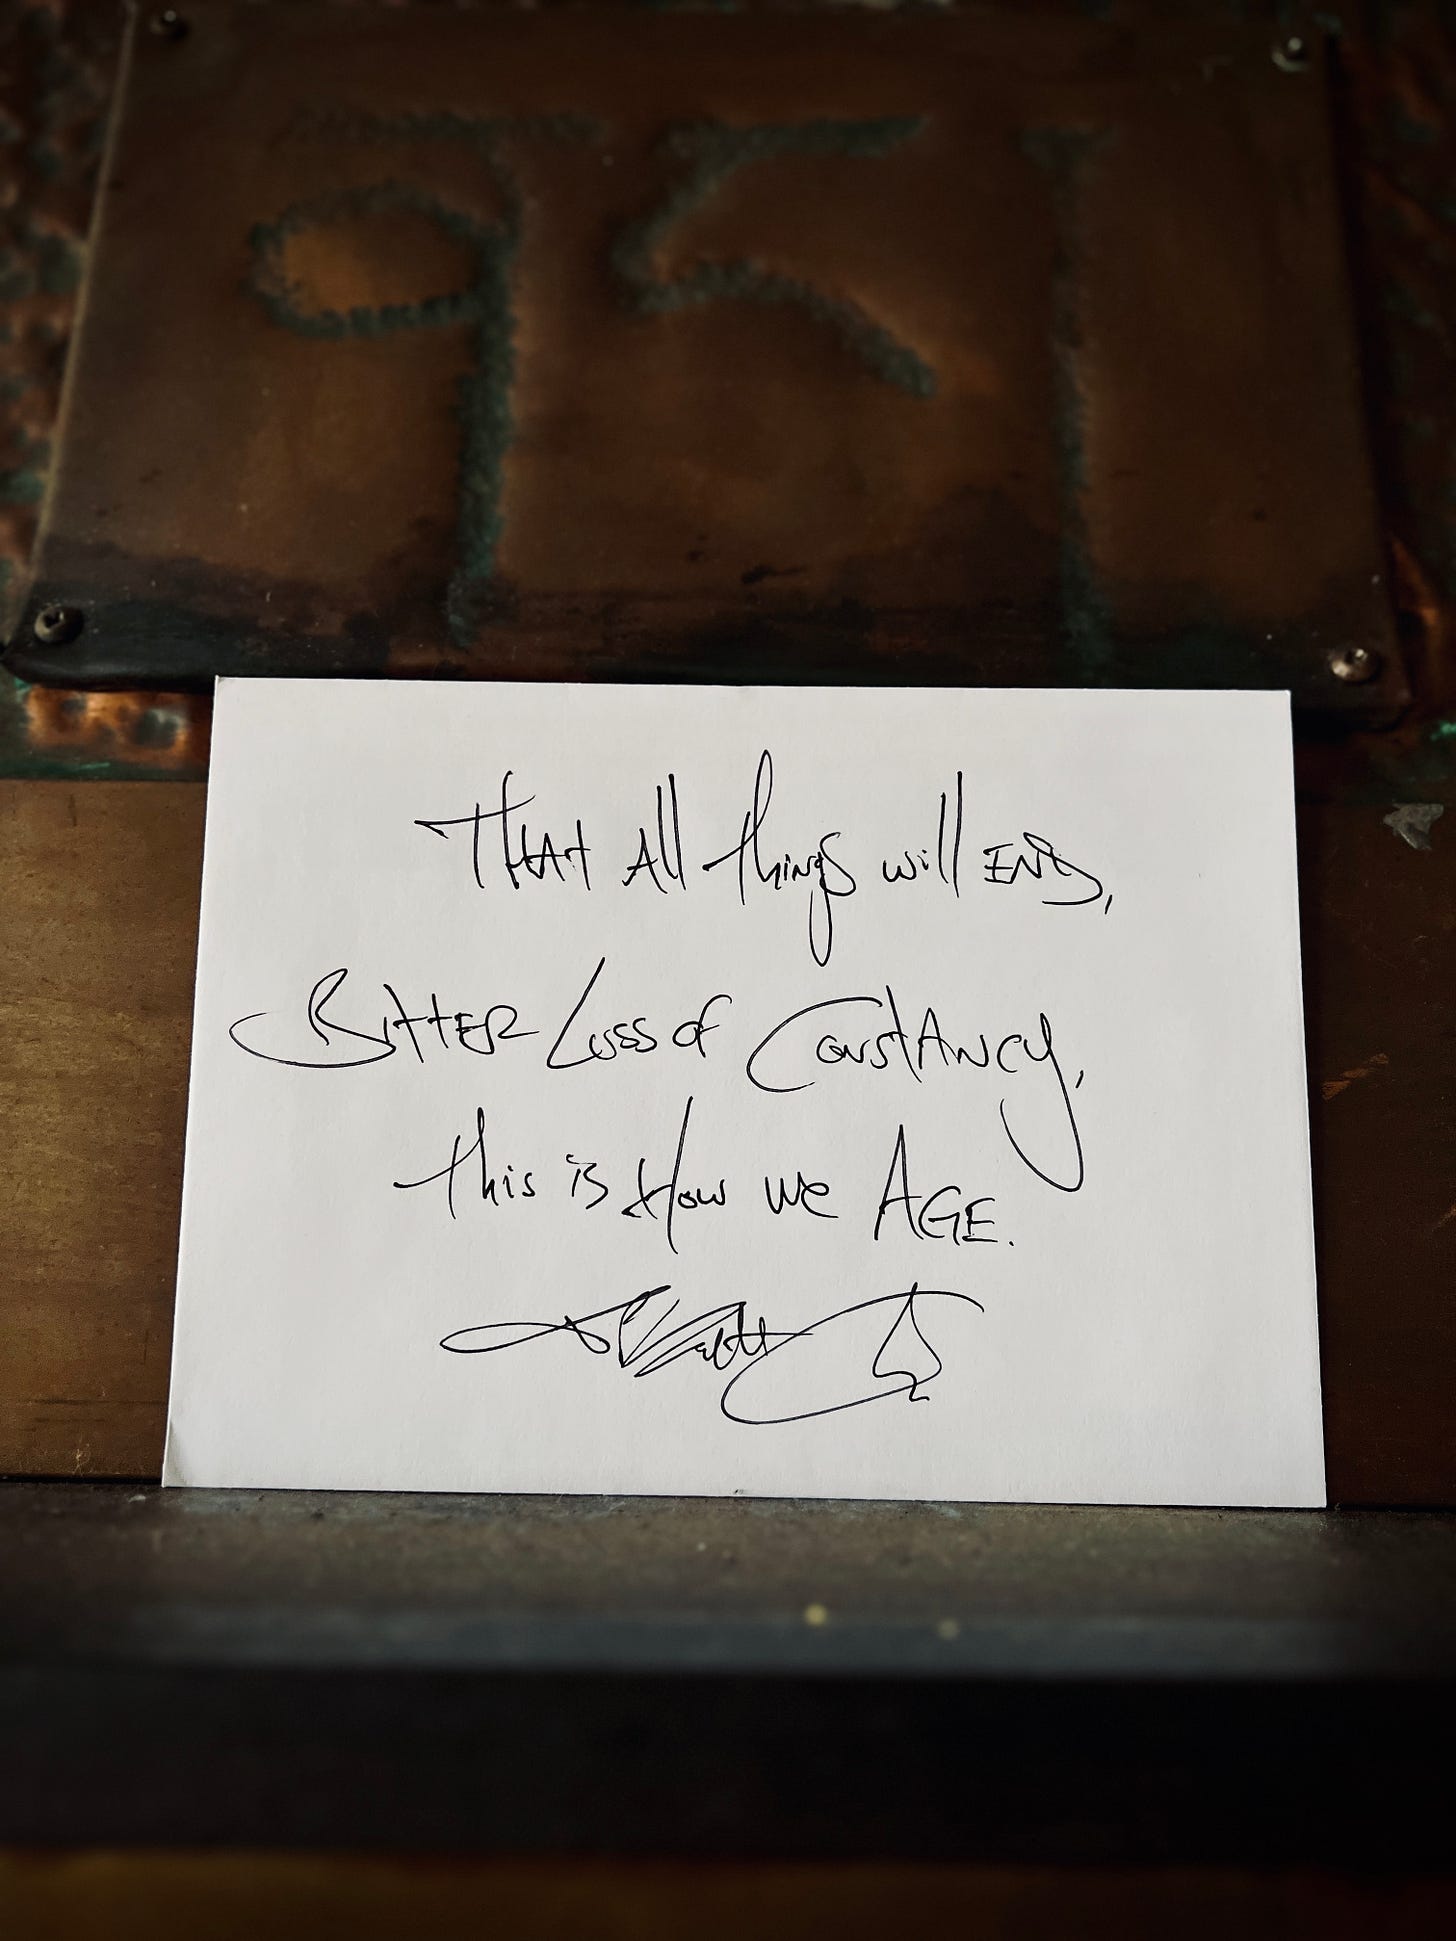 951
THAt All things will END,
BittER Loss of ConstANcy,
this is How we AGE.